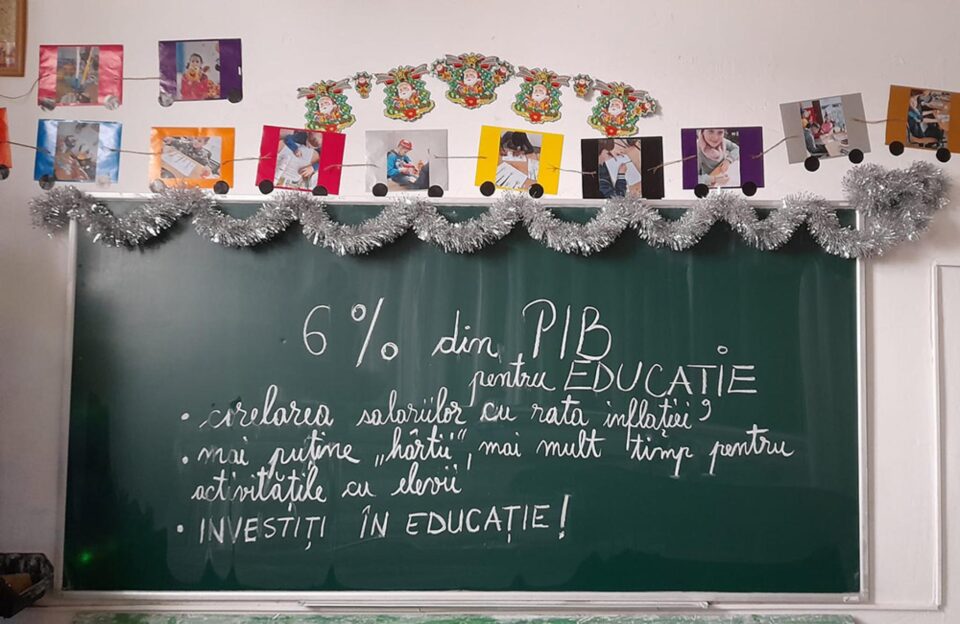 6% din PIB
pentru EDUCAȚIE
• corelarea salariilor cu rata inflației?
• mai puține „hârtii”, mai mult timp pentru
activitățile cu elevii
• INVESTIȚI ÎN EDUCAȚIE!